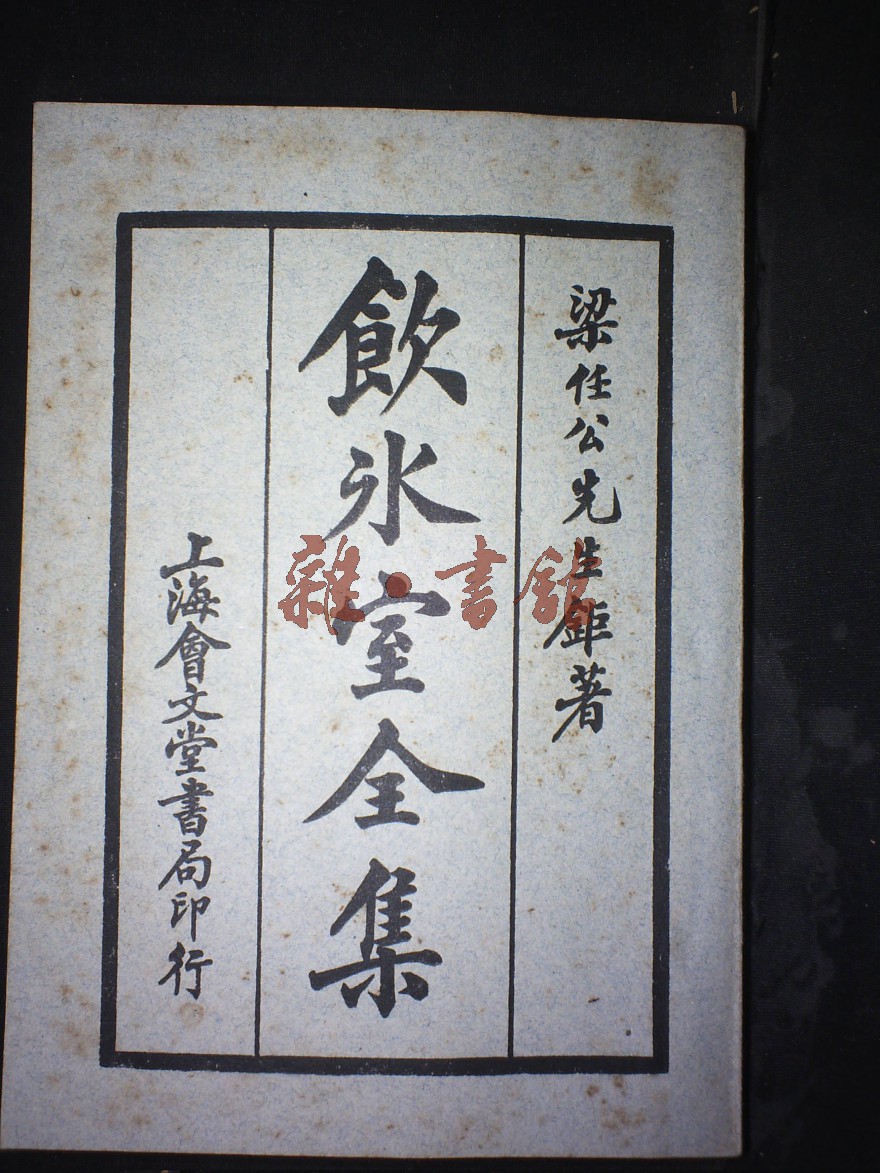 梁任公先生鉅著
飲氷室全集
上海會文堂書局印行
雜·書館